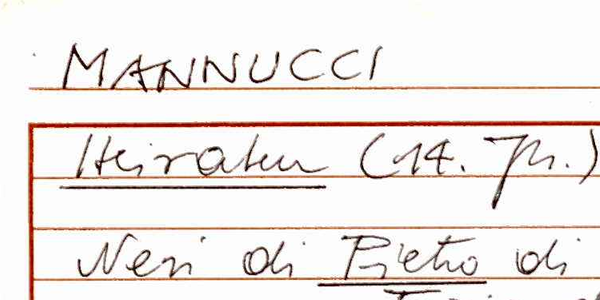 MANNUCCI
Heiraten (14. Jh.)
Neri di Pietro di